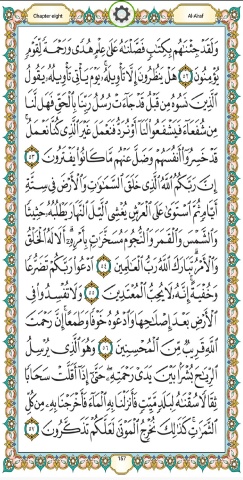 Chapter eight
Al-Araf
وَلَقَدْ جِئْنَٰهُم بِكِتَٰبٍ فَصَّلْنَٰهُ عَلَىٰ عِلْمٍ هُدًى وَرَحْمَةً لِّقَوْمٍ
يُؤْمِنُونَ ٥٢ هَلْ يَنظُرُونَ إِلَّا تَأْوِيلَهُۥ يَوْمَ يَأْتِى تَأْوِيلُهُۥ يَقُولُ
ٱلَّذِينَ نَسُوهُ مِن قَبْلُ قَدْ جَآءَتْ رُسُلُ رَبِّنَا بِٱلْحَقِّ فَهَل لَّنَا
مِن شُفَعَآءَ فَيَشْفَعُوا۟ لَنَآ أَوْ نُرَدُّ فَنَعْمَلَ غَيْرَ ٱلَّذِى كُنَّا نَعْمَلُ
قَدْ خَسِرُوٓا۟ أَنفُسَهُمْ وَضَلَّ عَنْهُم مَّا كَانُوا۟ يَفْتَرُونَ ٥٣
إِنَّ رَبَّكُمُ ٱللَّهُ ٱلَّذِى خَلَقَ ٱلسَّمَٰوَٰتِ وَٱلْأَرْضَ فِى سِتَّةِ
أَيَّامٍ ثُمَّ ٱسْتَوَىٰ عَلَى ٱلْعَرْشِ يُغْشِى ٱلَّيْلَ ٱلنَّهَارَ يَطْلُبُهُۥ حَثِيثًا
وَٱلشَّمْسَ وَٱلْقَمَرَ وَٱلنُّجُومَ مُسَخَّرَٰتٍۭ بِأَمْرِهِۦٓ أَلَا لَهُ ٱلْخَلْقُ
وَٱلْأَمْرُ تَبَارَكَ ٱللَّهُ رَبُّ ٱلْعَٰلَمِينَ ٥٤ ٱدْعُوا۟ رَبَّكُمْ تَضَرُّعًا
وَخُفْيَةً إِنَّهُۥ لَا يُحِبُّ ٱلْمُعْتَدِينَ ٥٥ وَلَا تُفْسِدُوا۟ فِى
ٱلْأَرْضِ بَعْدَ إِصْلَٰحِهَا وَٱدْعُوهُ خَوْفًا وَطَمَعًا إِنَّ رَحْمَتَ
ٱللَّهِ قَرِيبٌ مِّنَ ٱلْمُحْسِنِينَ ٥٦ وَهُوَ ٱلَّذِى يُرْسِلُ
ٱلرِّيَٰحَ بُشْرًۢا بَيْنَ يَدَىْ رَحْمَتِهِۦ حَتَّىٰٓ إِذَآ أَقَلَّتْ سَحَابًا
ثِقَالًا سُقْنَٰهُ لِبَلَدٍ مَّيِّتٍ فَأَنزَلْنَا بِهِ ٱلْمَآءَ فَأَخْرَجْنَا بِهِۦ مِن كُلِّ
ٱلثَّمَرَٰتِ كَذَٰلِكَ نُخْرِجُ ٱلْمَوْتَىٰ لَعَلَّكُمْ تَذَكَّرُونَ ٥٧
١٥٧